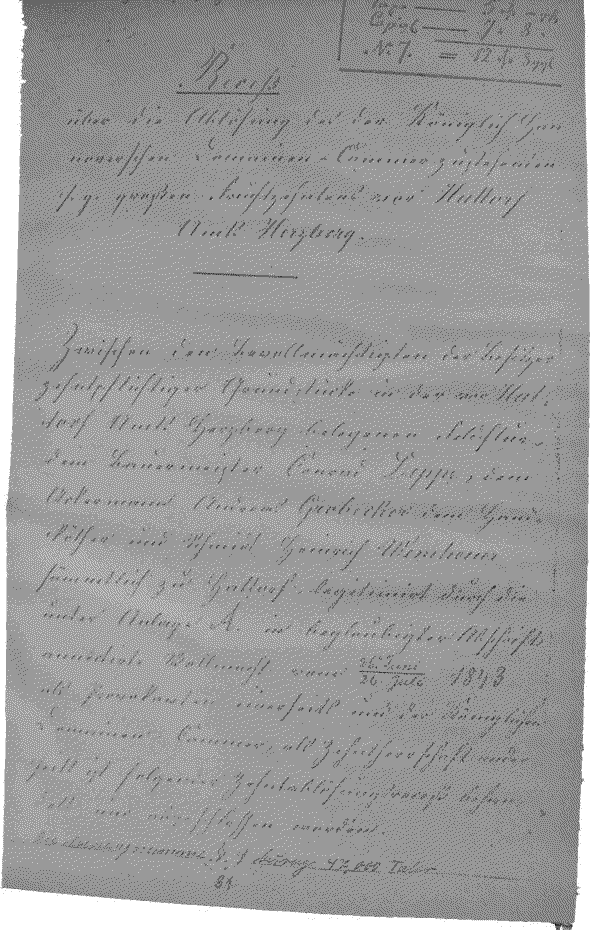 Copial — 7. 8.
№ 7. = 12
Recess
über die Ablösung des der Königlich Han
noverschen Domainen-Cammer zustehenden
s. g. großen Fruchtzehntens vor Hattorf
Amts Herzberg.
Zwischen den Bevollmächtigten der Besitzer
zehntpflichtiger Grundstücke in der vor Hat-
torf Amts Herzberg belegenen Feldflur,
dem Bauermeister Conrad Deppe, dem
Ackermann Andreas Grobecker dem Hand-
köther und Schmidt Heinrich
sämmtlich zu Hattorf legitimirt durch die
unter Anlage A. in beglaubigter Abschrift
Vollmacht vom 26. Juni / 26. July 1843
als Provokanten einerseits und der Königlichen
Domainen-Cammer, als Zehntherrschaft ander
seits ist folgender Zehntablösungsreceß
und abgeschlossen worden.
Die Ablösungssumme betrage 47,000 Taler